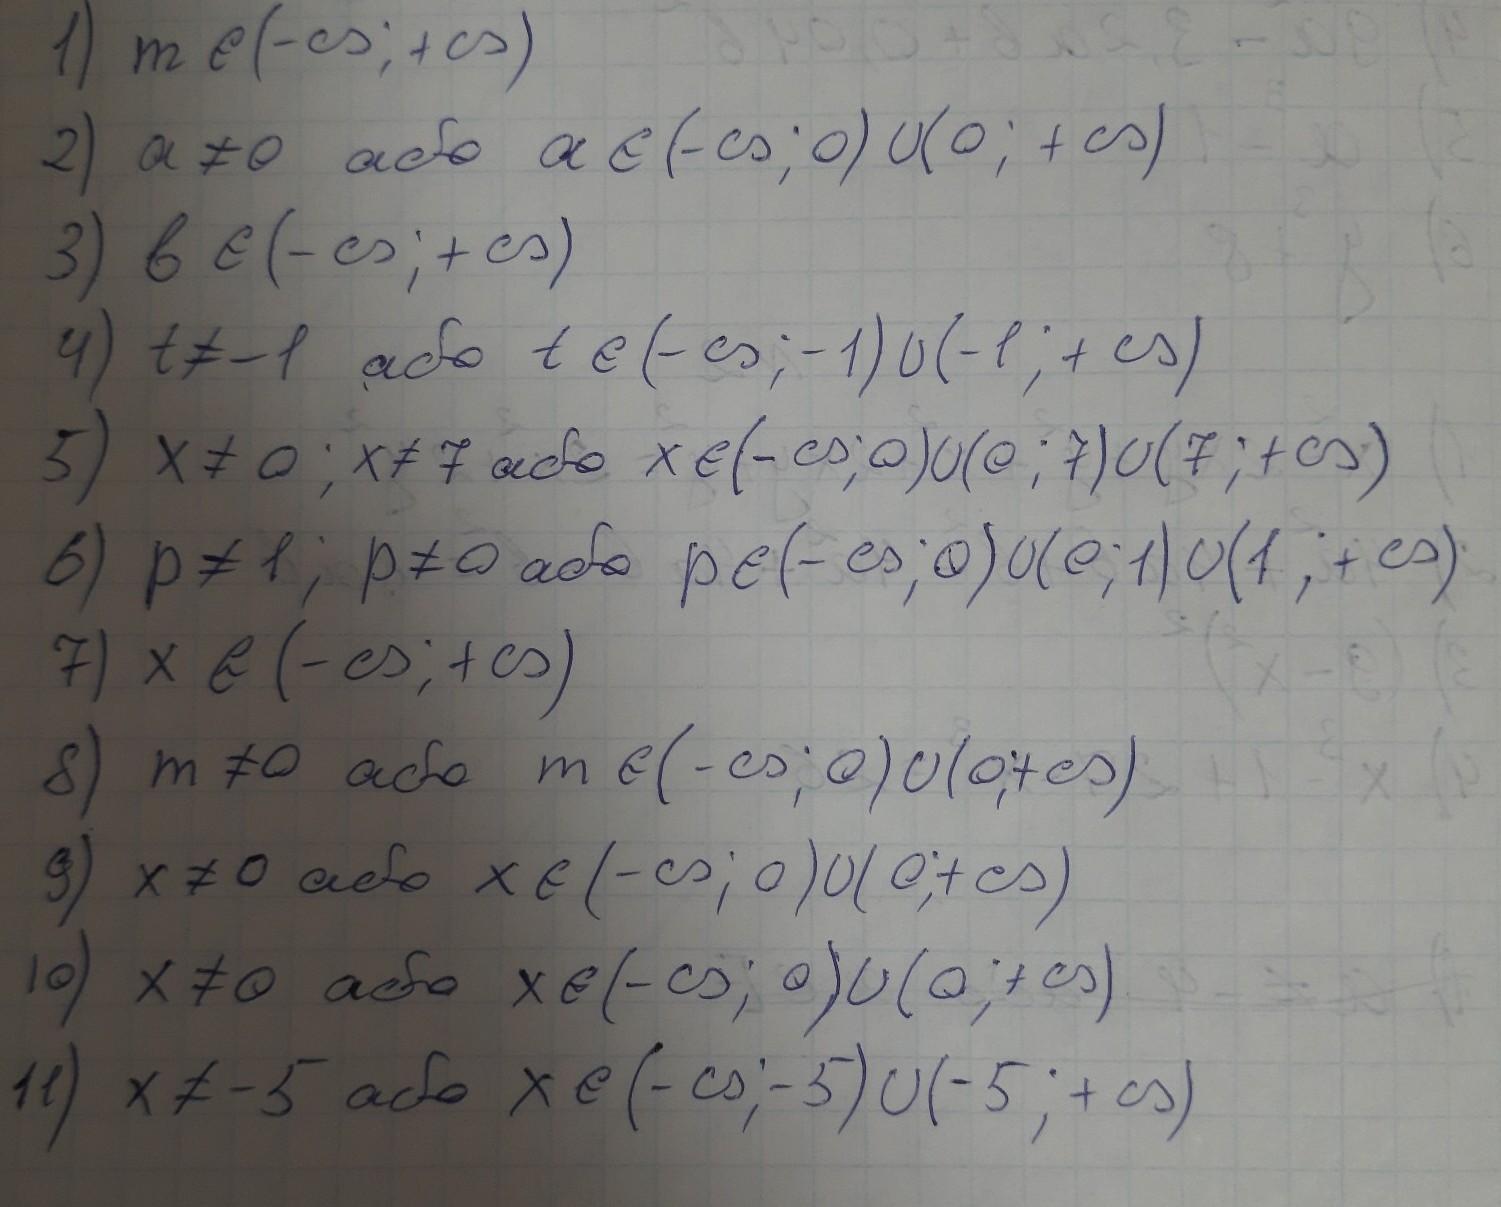 1) m ∈ (-∞; +∞)
2) a ≠ 0 або a ∈ (-∞; 0) ∪ (0; +∞)
3) b ∈ (-∞; +∞)
4) t ≠ -1 або t ∈ (-∞; -1) ∪ (-1; +∞)
5) x ≠ 0; x ≠ 7 або x ∈ (-∞; 0) ∪ (0; 7) ∪ (7; +∞)
6) p ≠ 1; p ≠ 0 або p ∈ (-∞; 0) ∪ (0; 1) ∪ (1; +∞)
7) x ∈ (-∞; +∞)
8) m ≠ 0 або m ∈ (-∞; 0) ∪ (0; +∞)
9) x ≠ 0 або x ∈ (-∞; 0) ∪ (0; +∞)
10) x ≠ 0 або x ∈ (-∞; 0) ∪ (0; +∞)
11) x ≠ -5 або x ∈ (-∞; -5) ∪ (-5; +∞)